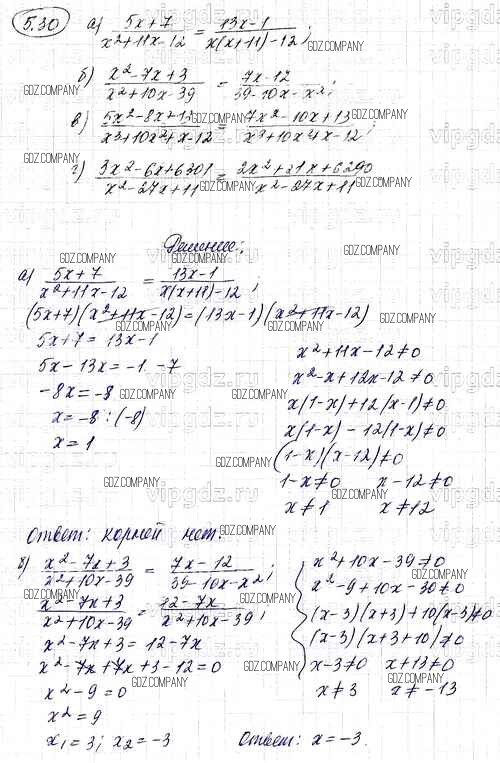 5.30 а) (5x+7)/(x²+11x-12) = (13x-1)/(x(x+11)-12);
б) (x²-7x+3)/(x²+10x-39) = (7x-12)/(39-10x-x²);
в) (5x²-8x+11)/(x³+10x²+x-12) = (7x²-10x+13)/(x³+10x4x-12);
г) (3x²-6x+6301)/(x²-27x+11) = (2x²+21x+6290)/(x²-27x+11)
Решение:
а) (5x+7)/(x²+11x-12) = (13x-1)/(x(x+11)-12);
(5x+7)(x²+11x-12)=(13x-1)(x²+11x-12)
5x+7 = 13x-1
5x-13x=-1 -7
-8x=-8
x=-8:(-8)
x=1
x²+11x-12≠0
x²-x+12x-12≠0
x(1-x)+12(x-1)≠0
x(1-x)-12(1-x)≠0
(1-x)(x-12)≠0
1-x≠0 x-12≠0
x≠1 x≠12
Ответ: корней нет.
б) (x²-7x+3)/(x²+10x-39) = (7x-12)/(39-10x-x²);
(x²-7x+3)/(x²+10x-39) = (12-7x)/(x²+10x-39);
x²-7x+3=12-7x
x²-7x+7x+3-12=0
x²-9=0
x²=9
x₁=3; x₂=-3
x²+10x-39≠0
x²-9+10x-30≠0
(x-3)(x+3)+10(x-3)≠0
(x-3)(x+3+10)≠0
x-3≠0 x+13≠0
x≠3 x≠-13
Ответ: x=-3.
GDZ.COMPANY
vipgdz.ru